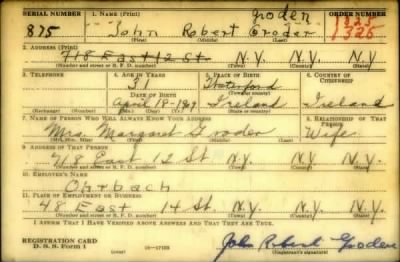 SERIAL NUMBER 1. NAME (Print) Groden ORDER NUMBER
875 John Robert Groden 1326
(First) (Middle) (Last)
2. ADDRESS (Print)
418 East 12 St. N.Y. N.Y.
(Number and street or R. F. D. number) (Town) (County) (State)
3. TELEPHONE 4. AGE IN YEARS 5. PLACE OF BIRTH 6. COUNTRY OF CITIZENSHIP
31 Waterford
DATE OF BIRTH (Town or county)
April 18-1909 Ireland Ireland
(Exchange) (Number) (Mo.) (Day) (Yr.) (State or country)
7. NAME OF PERSON WHO WILL ALWAYS KNOW YOUR ADDRESS 8. RELATIONSHIP OF THAT PERSON
Mrs. Margaret Groden Wife
(Mr., Mrs., Miss) (First) (Middle) (Last)
9. ADDRESS OF THAT PERSON
418 East 12 St. N.Y. N.Y. N.Y.
(Number and street or R. F. D. number) (Town) (County) (State)
10. EMPLOYER'S NAME
Ohrbach
11. PLACE OF EMPLOYMENT OR BUSINESS
48 East 14 St. N.Y. N.Y. N.Y.
(Number and street or R. F. D. number) (Town) (County) (State)
I AFFIRM THAT I HAVE VERIFIED ABOVE ANSWERS AND THAT THEY ARE TRUE.
REGISTRATION CARD
D. S. S. Form 1 (over) 16-17105 John Robert Groden
(Registrant's signature)